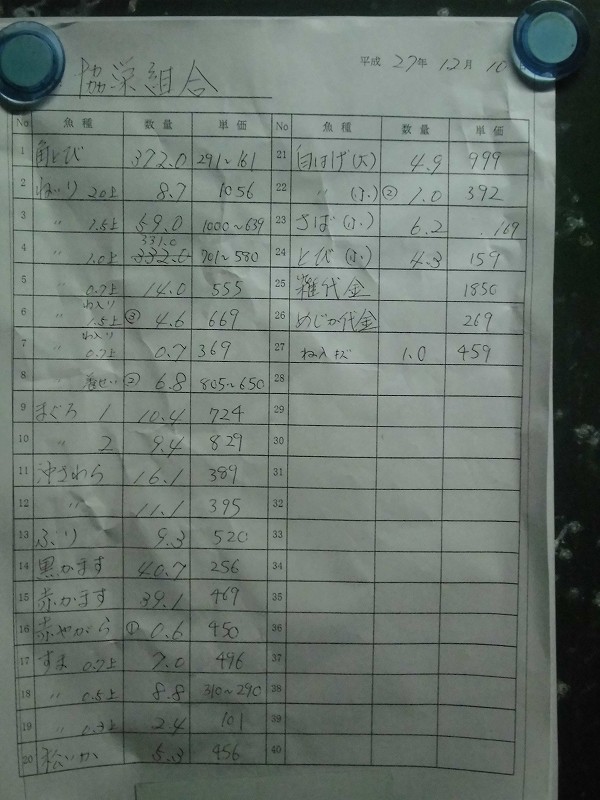 平成 27年 12月 10
協栄組合
No 魚種 数量 単価 No 魚種 数量 単価
1 角とび 372.0 291~161
2 ねいり 2.0上 8.7 1056
3 〃 1.5上 59.0 1000~639
4 〃 1.0上 331.0 701~580
5 〃 0.7上 14.0 555
6 〃 ね入り 1.5上 ③ 4.6 669
7 〃 ね入り 0.7上 0.7 369
8 〃 ② 6.8 805~650
9 まぐろ 1 10.4 724
10 〃 2 9.4 829
11 沖さわら 16.1 389
12 〃 11.1 395
13 ぶり 9.3 520
14 黒かます 40.7 256
15 赤かます 39.1 469
16 赤やがら ① 0.6 450
17 すま 0.7上 7.0 496
18 〃 0.5上 8.8 310~290
19 〃 0.3上 2.4 101
20 松いか 5.3 456
21 白はげ(大) 4.9 999
22 〃 (小) ② 1.0 392
23 さば(小) 6.2 169
24 とび(小) 4.3 159
25 雑代金 1850
26 めじか代金 269
27 ね入キズ 1.0 459
28
29
30
31
32
33
34
35
36
37
38
39
40